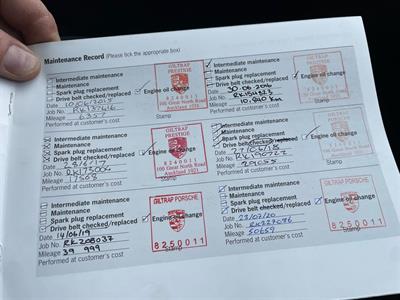 Maintenance Record (Please tick the appropriate box)
Intermediate maintenance
Maintenance
Spark plug replacement
Drive belt checked/replaced
Engine oil change
Date
Job No.
Mileage 6357
Performed at customer's cost
Stamp
GILTRAP
PRESTIGE
8240011
100 Great North Road
Auckland 1021
Intermediate maintenance
Maintenance
Spark plug replacement
Drive belt checked/replaced
Engine oil change
Date 30.06.2016
Job No.
Mileage 10,940 km
Performed at customer's cost
Stamp
GILTRAP
PRESTIGE
Intermediate maintenance
Maintenance
Spark plug replacement
Drive belt checked/replaced
Engine oil change
Date
Job No.
Mileage
Performed at customer's cost
Stamp
GILTRAP
PRESTIGE
8240011
100 Great North Road
Auckland 1021
Intermediate maintenance
Maintenance
Spark plug replacement
Drive belt checked/replaced
Engine oil change
Date
Job No.
Mileage
Performed at customer's cost
Stamp
Intermediate maintenance
Maintenance
Spark plug replacement
Drive belt checked/replaced
Engine oil change
Date 14/06/19
Job No. RK208037
Mileage 39 999
Performed at customer's cost
Stamp
GILTRAP PORSCHE
8250011
Intermediate maintenance
Maintenance
Spark plug replacement
Drive belt checked/replaced
Engine oil change
Date 23/07/20
Job No.
Mileage 50659
Performed at customer's cost
Stamp
GILTRAP PORSCHE
8250011